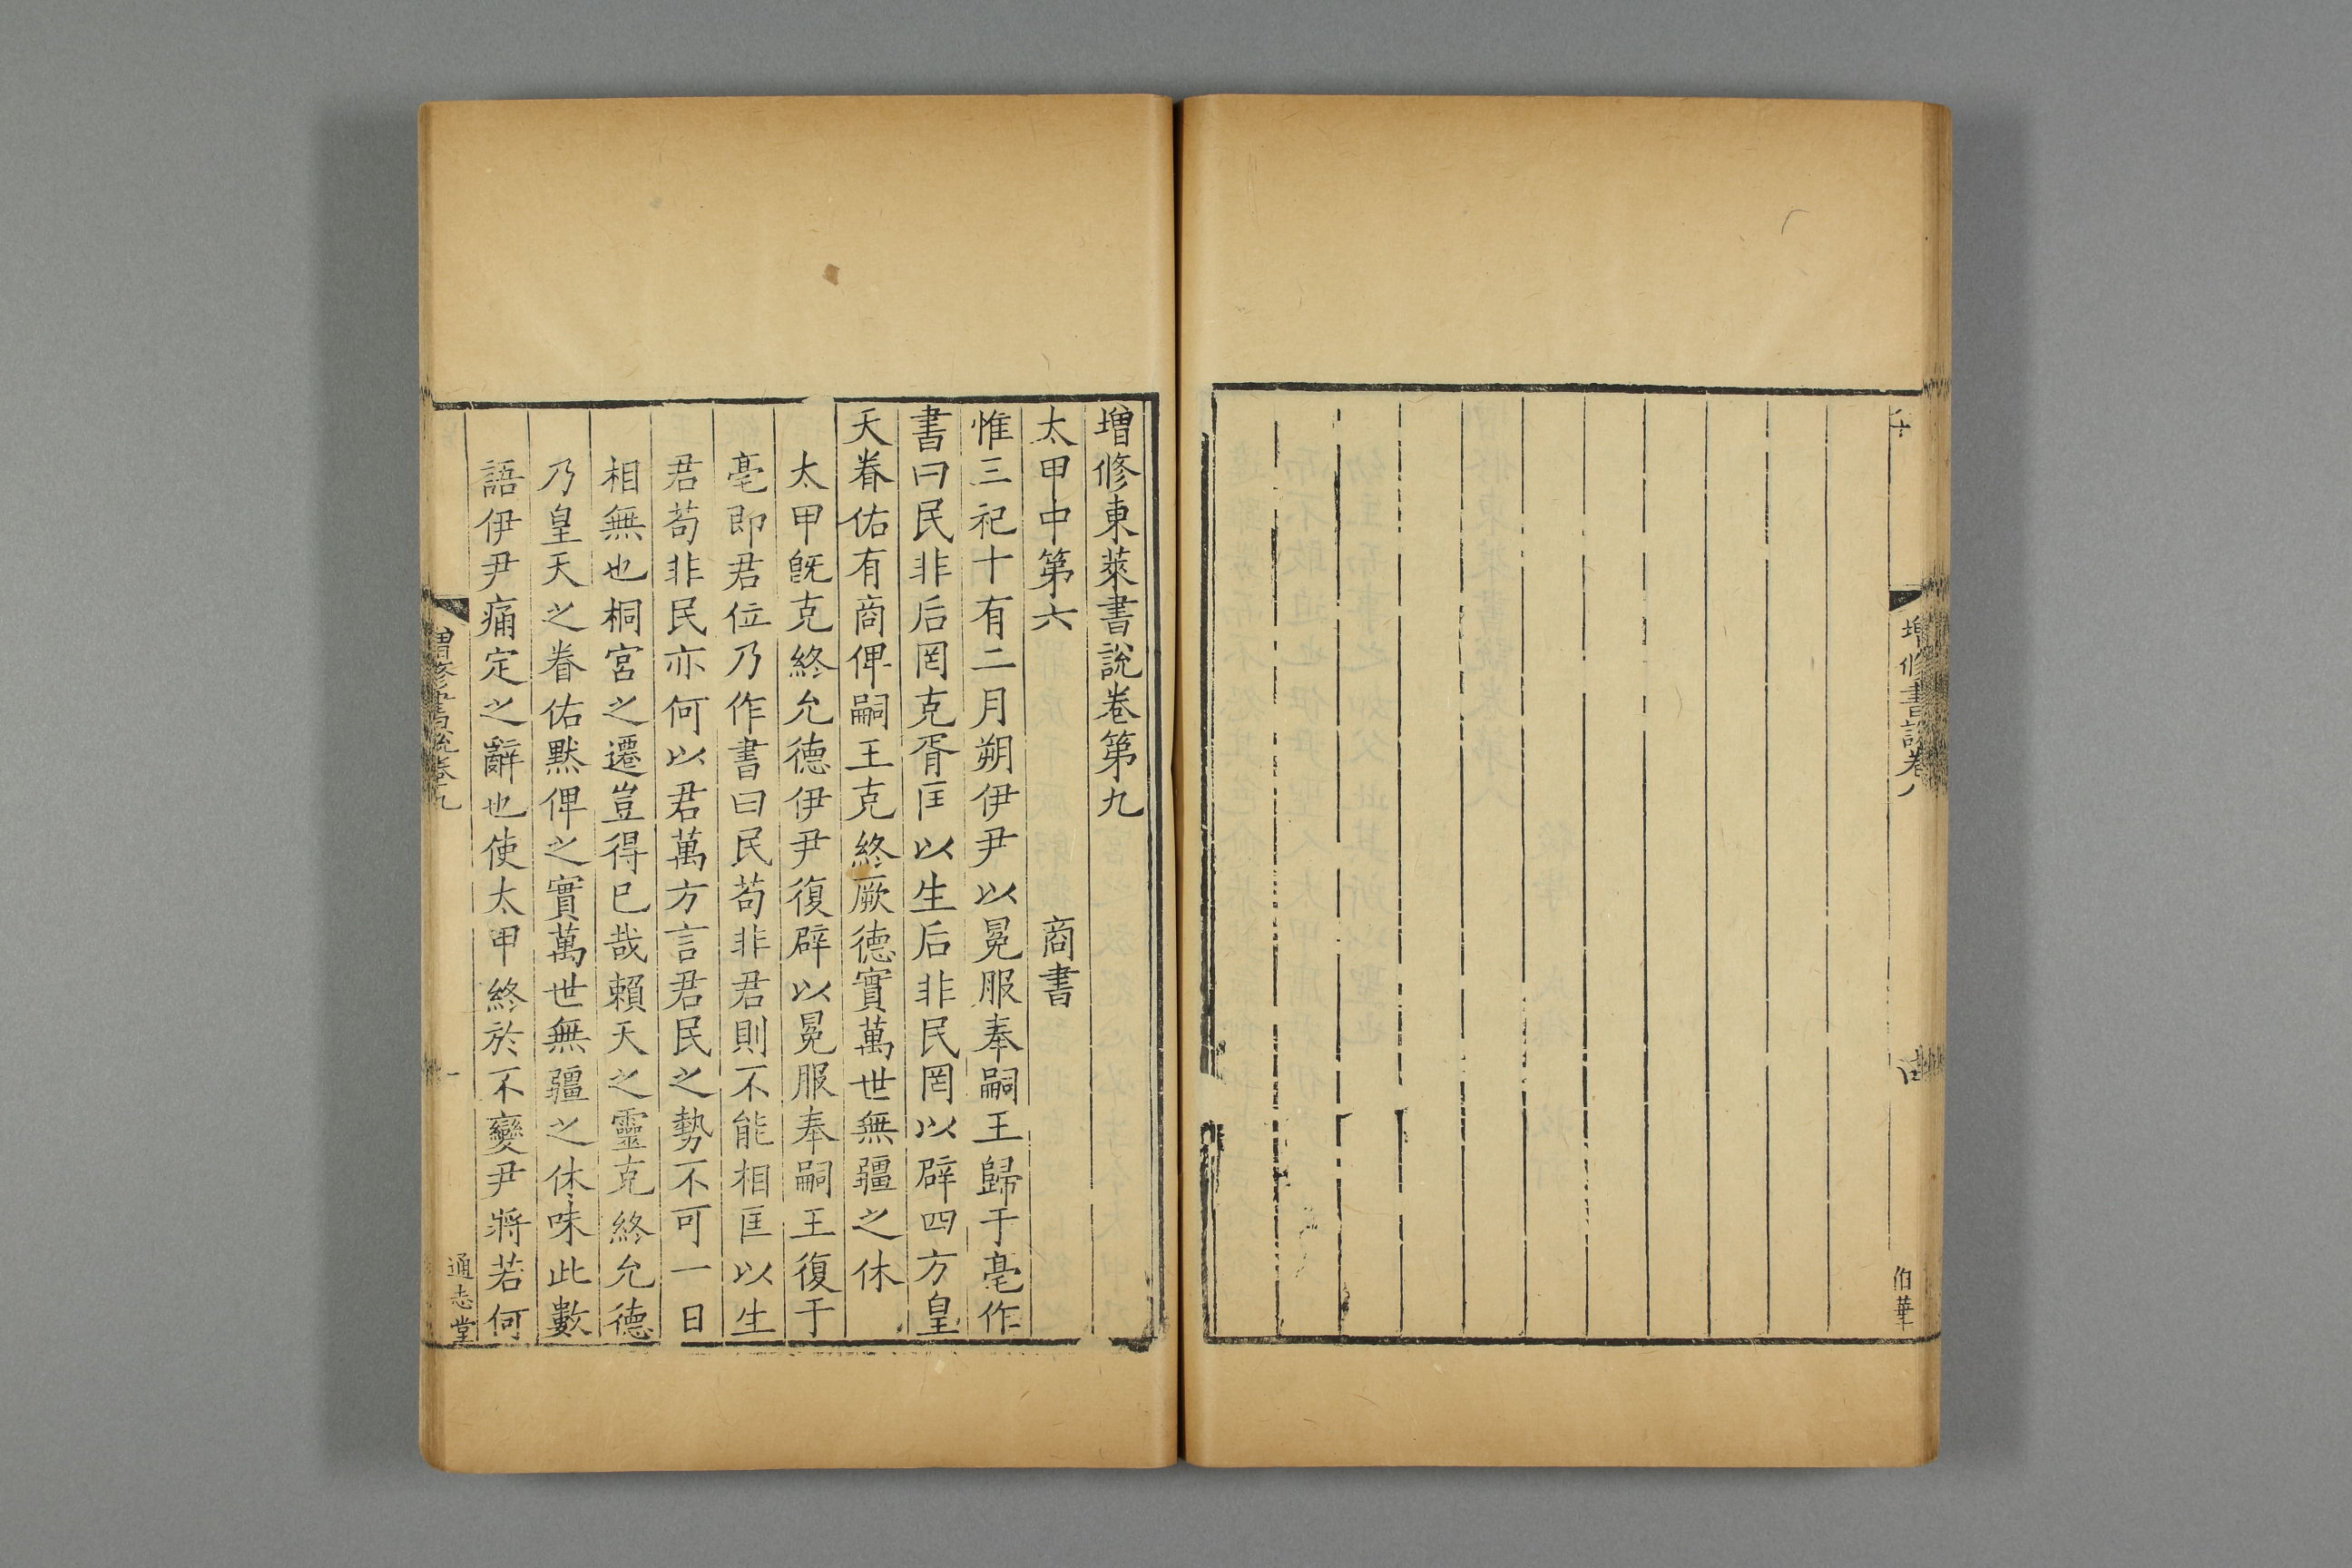 增修書說卷八
伯華
增修東萊書說卷第九
太甲中第六 商書
惟三祀十有二月朔伊尹以冕服奉嗣王歸于亳作
書曰民非后罔克胥匡以生后非民罔以辟四方皇
天眷佑有商俾嗣王克終厥德實萬世無疆之休
太甲旣克終允德伊尹復辟以冕服奉嗣王復于
亳即君位乃作書曰民苟非君則不能相匡以生
君苟非民亦何以君萬方言君民之勢不可一日
相無也桐宮之遷豈得已哉賴天之靈克終允德
乃皇天之眷佑默俾之實萬世無疆之休味此數
語伊尹痛定之辭也使太甲終於不變尹將若何
增修書說卷九
一
通志堂